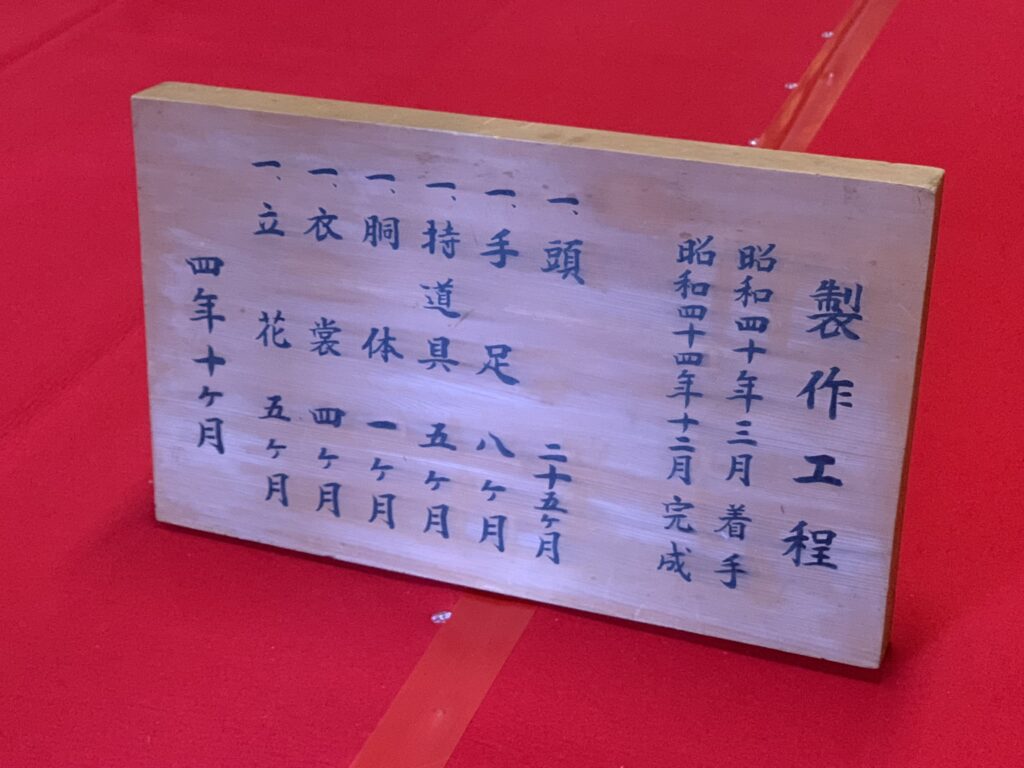 製作工程
昭和四十年三月 着手
昭和四十四年十二月 完成
一、頭 二十五ヶ月
一、手足 八ヶ月
一、持道具 五ヶ月
一、胴体 一ヶ月
一、衣裳 四ヶ月
一、立花 五ヶ月
四年十ヶ月